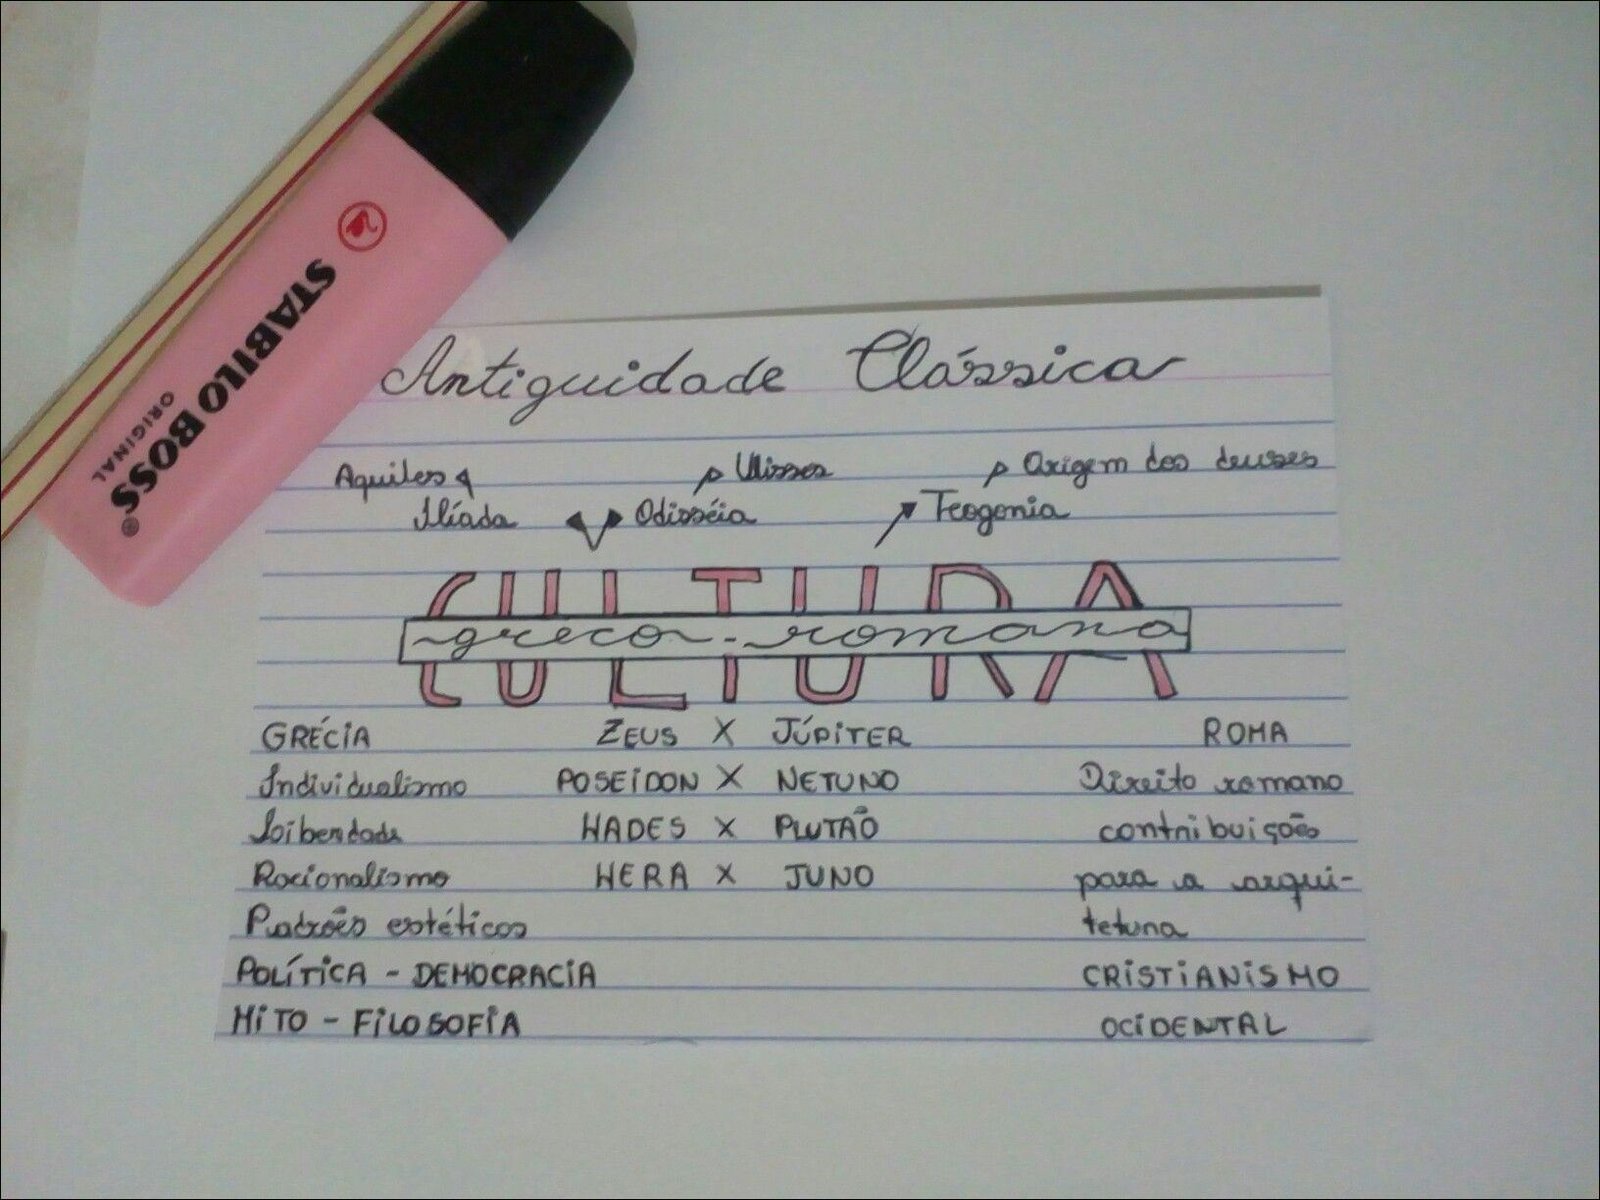 STABILO BOSS®
ORIGINAL
Antiguidade Clássica
Aquiles Ulisses Origem dos deuses
Ilíada Odisséia Teogonia
CULTURA
greco-romana
GRÉCIA ZEUS X JÚPITER ROMA
Individualismo POSEIDON X NETUNO Direito romano
Liberdade HADES X PLUTÃO contribuições
Racionalismo HERA X JUNO para a arqui-
Padrões estéticos tetura
POLÍTICA - DEMOCRACIA CRISTIANISMO
MITO - FILOSOFIA OCIDENTAL